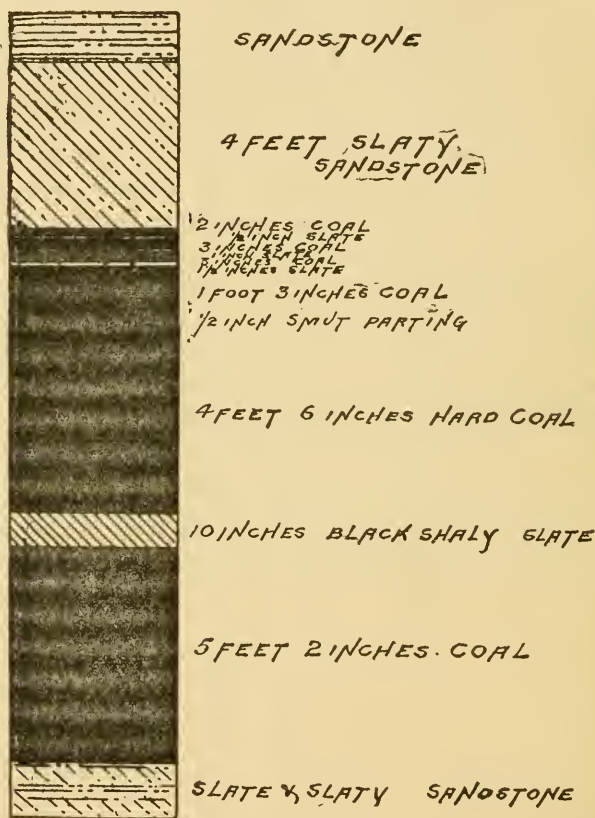 SANDSTONE
4 FEET SLATY
SANDSTONE
2 INCHES COAL
1/2 INCH SLATE
3 INCHES COAL
INCH SLATE
INCHES COAL
1 1/2 INCHES SLATE
1 FOOT 3 INCHES COAL
1/2 INCH SMUT PARTING
4 FEET 6 INCHES HARD COAL
10 INCHES BLACK SHALY SLATE
5 FEET 2 INCHES. COAL
SLATE & SLATY SANDSTONE